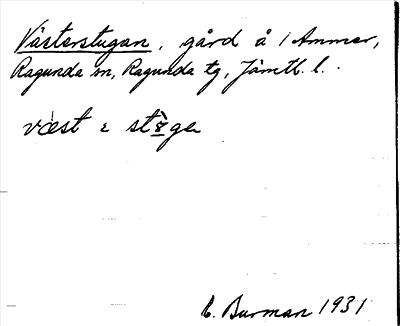 Västerstugan, gård å 1 Ammer,
Ragunda sn, Ragunda tg, Jämtl. l.
E. Burman 1931